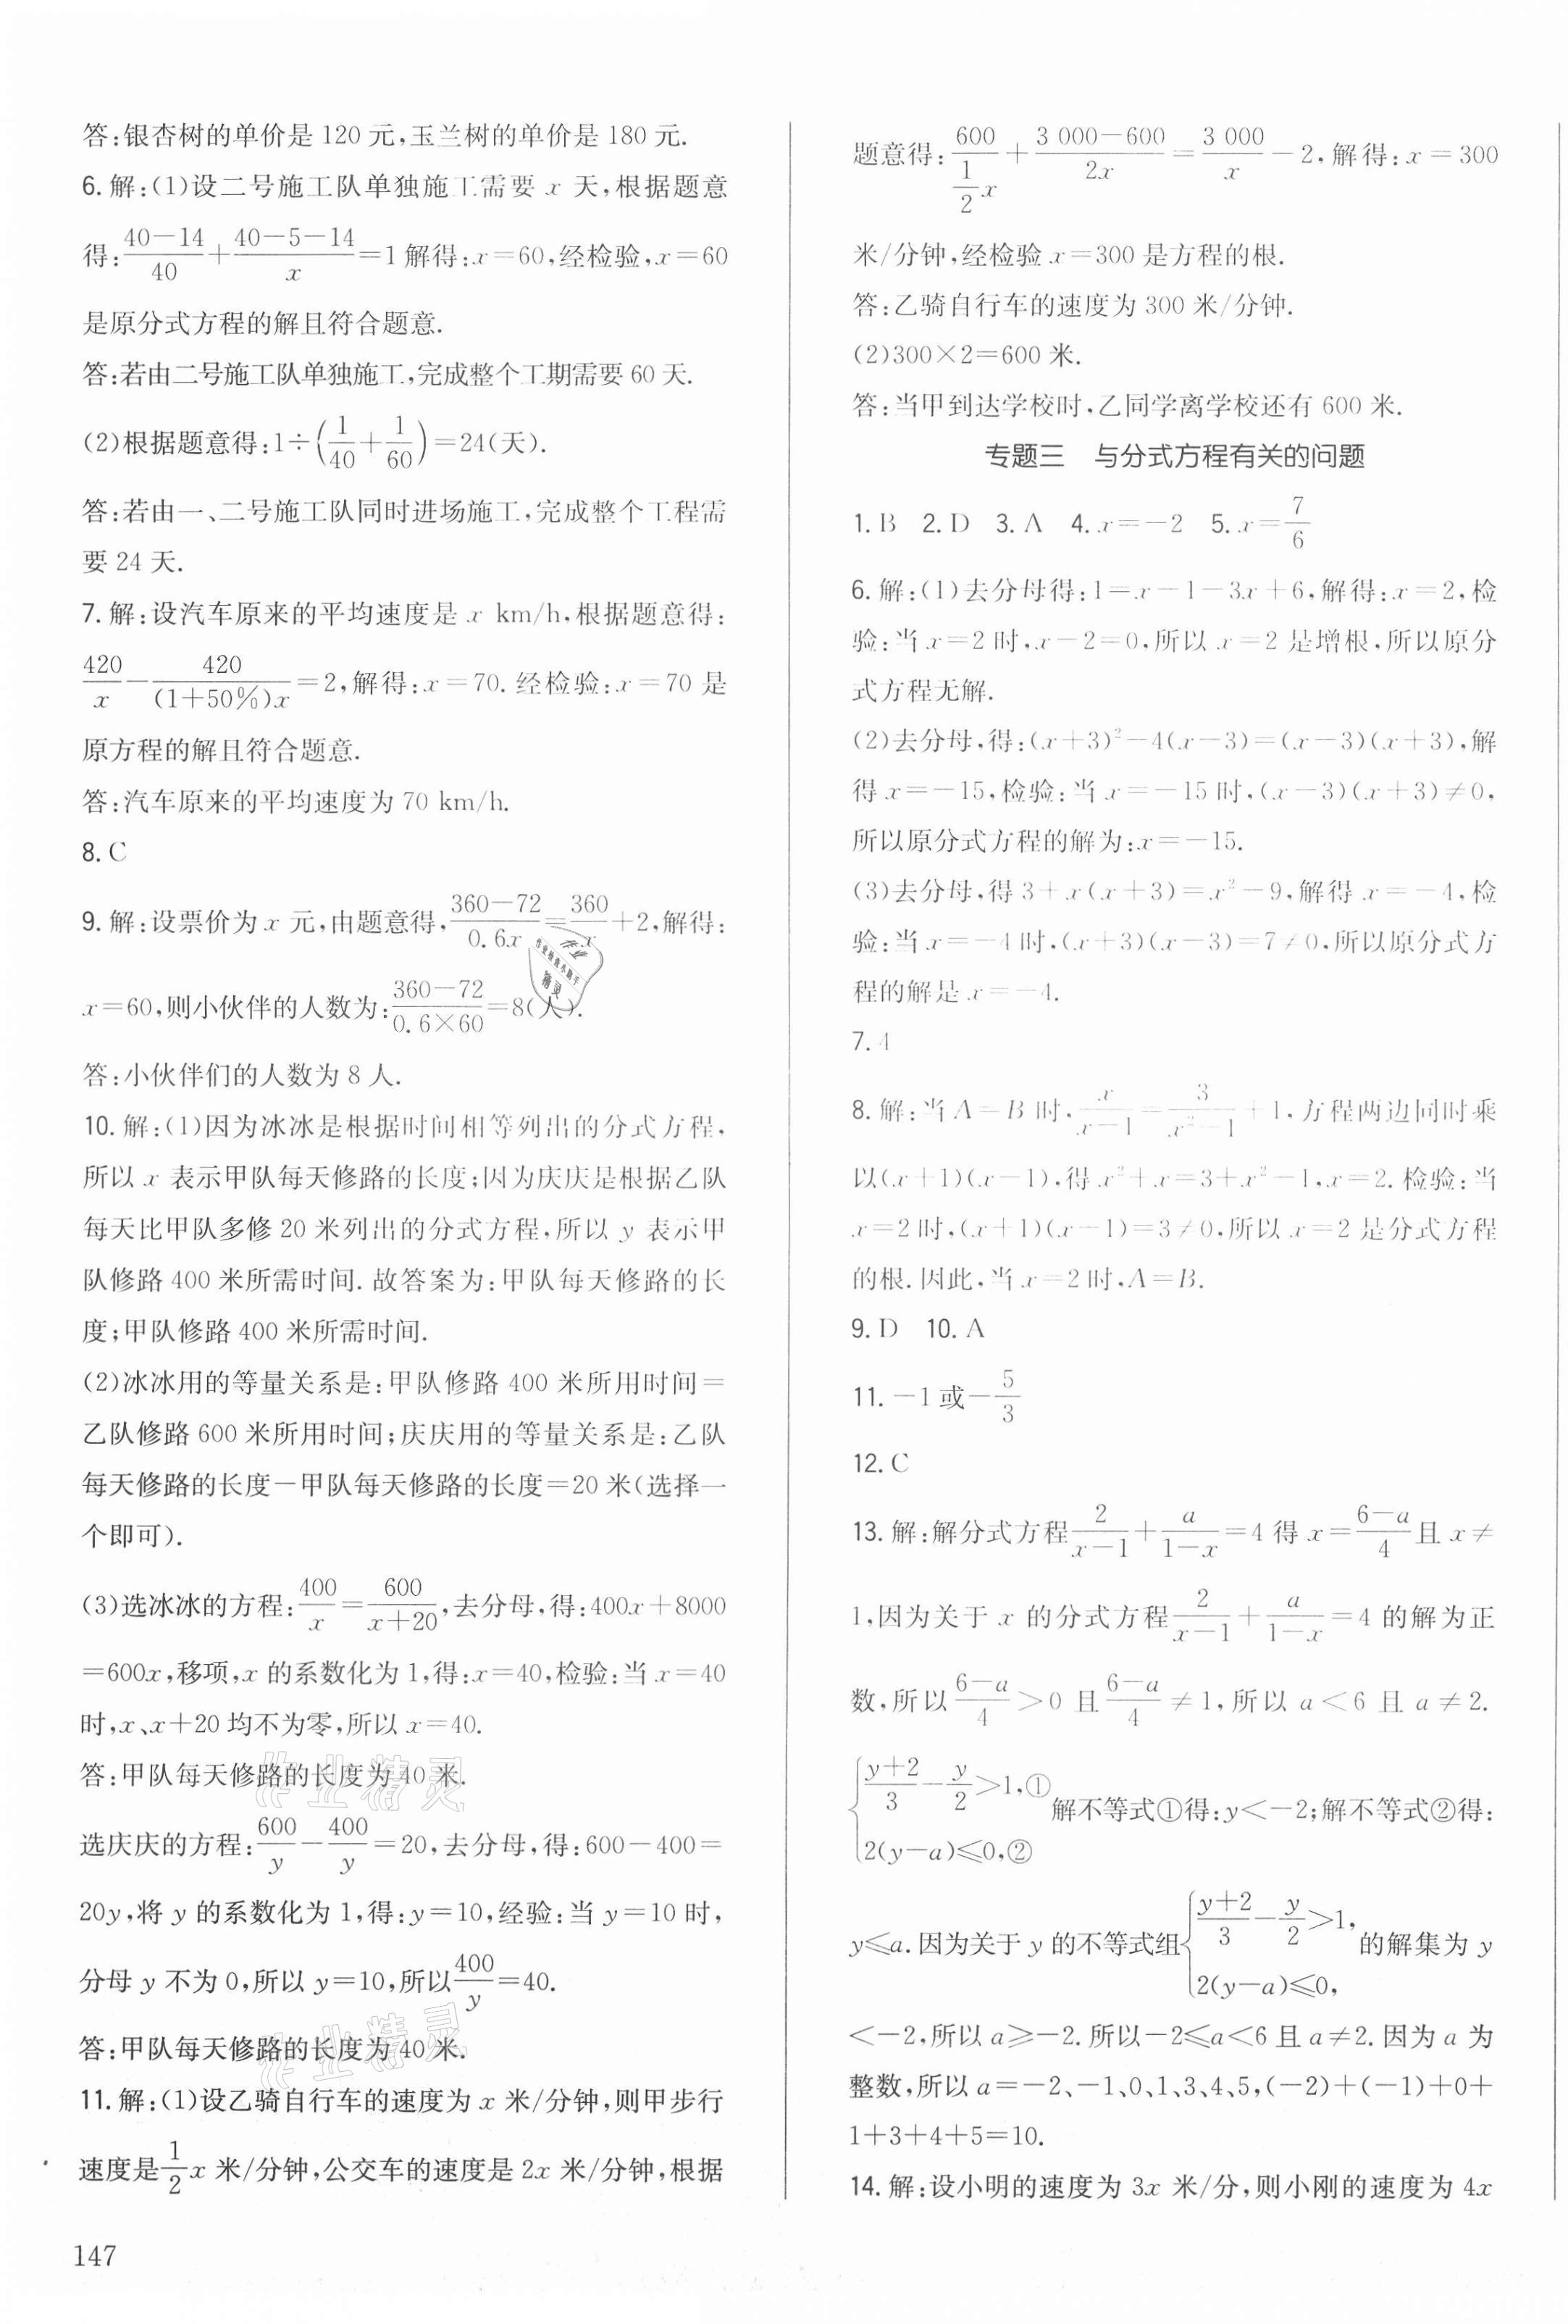 答:银杏树的单价是 120 元,玉兰树的单价是 180 元.
6. 解:(1)设二号施工队单独施工需要 x 天,根据题意
得:\frac{40-14}{40}+\frac{40-5-14}{x}=1 解得:x=60,经检验,x=60
是原分式方程的解且符合题意.
答:若由二号施工队单独施工,完成整个工期需要 60 天.
(2)根据题意得:1÷(\frac{1}{40}+\frac{1}{60})=24(天).
答:若由一、二号施工队同时进场施工,完成整个工程需
要 24 天.
7. 解:设汽车原来的平均速度是 x km/h,根据题意得:
\frac{420}{x}-\frac{420}{(1+50%)x}=2,解得:x=70. 经检验:x=70 是
原方程的解且符合题意.
答:汽车原来的平均速度为 70 km/h.
8. C
9. 解:设票价为 x 元,由题意得,\frac{360-72}{0.6x}=\frac{360}{x}+2,解得:
x=60,则小伙伴的人数为:\frac{360-72}{0.6×60}=8(人).
答:小伙伴们的人数为 8 人.
10. 解:(1)因为冰冰是根据时间相等列出的分式方程,
所以 x 表示甲队每天修路的长度;因为庆庆是根据乙队
每天比甲队多修 20 米列出的分式方程,所以 y 表示甲
队修路 400 米所需时间. 故答案为:甲队每天修路的长
度;甲队修路 400 米所需时间.
(2)冰冰用的等量关系是:甲队修路 400 米所用时间=
乙队修路 600 米所用时间;庆庆用的等量关系是:乙队
每天修路的长度-甲队每天修路的长度=20 米(选择一
个即可).
(3)选冰冰的方程:\frac{400}{x}=\frac{600}{x+20},去分母,得:400x+8000
=600x,移项,x 的系数化为 1,得:x=40,检验:当 x=40
时,x、x+20 均不为零,所以 x=40.
答:甲队每天修路的长度为 40 米.
选庆庆的方程:\frac{600}{y}-\frac{400}{y}=20,去分母,得:600-400=
20y,将 y 的系数化为 1,得:y=10,经验:当 y=10 时,
分母 y 不为 0,所以 y=10,所以\frac{400}{y}=40.
答:甲队每天修路的长度为 40 米.
11. 解:(1)设乙骑自行车的速度为 x 米/分钟,则甲步行
速度是\frac{1}{2}x 米/分钟,公交车的速度是 2x 米/分钟,根据
147
题意得:\frac{600}{\frac{1}{2}x}+\frac{3 000-600}{2x}=\frac{3 000}{x}-2,解得:x=300
米/分钟,经检验 x=300 是方程的根.
答:乙骑自行车的速度为 300 米/分钟.
(2)300×2=600 米.
答:当甲到达学校时,乙同学离学校还有 600 米.
专题三 与分式方程有关的问题
1. B 2. D 3. A 4. x=-2 5. x=\frac{7}{6}
6. 解:(1)去分母得:1=x-1-3x+6,解得:x=2,检
验:当 x=2 时,x-2=0,所以 x=2 是增根,所以原分
式方程无解.
(2)去分母,得:(x+3)²-4(x-3)=(x-3)(x+3),解
得 x=-15,检验:当 x=-15 时,(x-3)(x+3)≠0,
所以原分式方程的解为:x=-15.
(3)去分母,得 3+x(x+3)=x²-9,解得 x=-4,检
验:当 x=-4 时,(x+3)(x-3)=7≠0,所以原分式方
程的解是 x=-4.
7. 4
8. 解:当 A=B 时,\frac{x}{x-1}=\frac{3}{x²-1}+1,方程两边同时乘
以(x+1)(x-1),得 x²+x=3+x²-1,x=2. 检验:当
x=2 时,(x+1)(x-1)=3≠0,所以 x=2 是分式方程
的根. 因此,当 x=2 时,A=B.
9. D 10. A
11. -1 或-\frac{5}{3}
12. C
13. 解:解分式方程\frac{2}{x-1}+\frac{a}{1-x}=4 得 x=\frac{6-a}{4}且 x≠
1,因为关于 x 的分式方程\frac{2}{x-1}+\frac{a}{1-x}=4 的解为正
数,所以\frac{6-a}{4}>0 且\frac{6-a}{4}≠1,所以 a<6 且 a≠2.
{\frac{y+2}{3}-\frac{y}{2}>1,① 2(y-a)≤0,② 解不等式①得:y<-2;解不等式②得:
y≤a. 因为关于 y 的不等式组{\frac{y+2}{3}-\frac{y}{2}>1, 2(y-a)≤0, 的解集为 y
<-2,所以 a≥-2. 所以-2≤a<6 且 a≠2. 因为 a 为
整数,所以 a=-2、-1、0、1、3、4、5,(-2)+(-1)+0+
1+3+4+5=10.
14. 解:设小明的速度为 3x 米/分,则小刚的速度为 4x
作业精灵
作业精灵